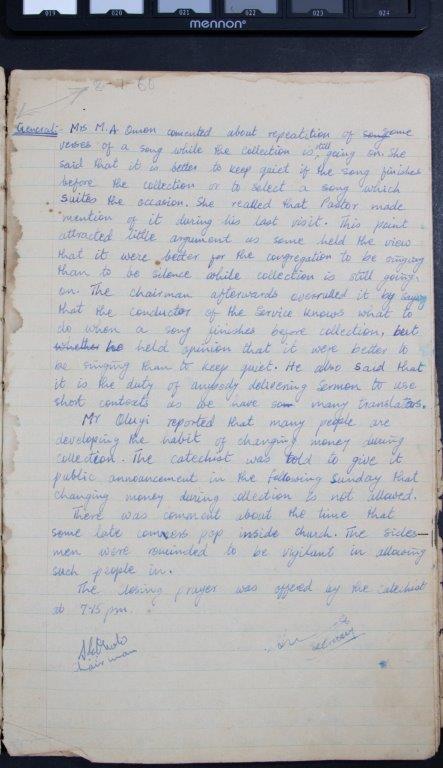 019 020 021 022 023 024
mennon®
2-7-60
General:- Mrs M.A. Omon comented about repeatition of song some
verses of a song while the collection is still going on. She
said that it is better to keep quiet if the song finishes
before the collection or to select a song which
suites the occasion. She recalled that Pastor made
mention of it during his last visit. This point
attracted little argument as some held the view
that it were better for the congregation to be singing
than to be silence while collection is still going
on. The chairman afterwards overruled it by saying
that the conductor of the Service knows what to
do when a song finishes before collection, but
whether he held opinion that it were better to
be singing than to keep quiet. He also said that
it is the duty of anybody delivering Sermon to use
short contexts as we have so many translators.
Mr Oluyi reported that many people are
developing the habit of changing money during
collection. The catechist was told to give it
public announcement in the following Sunday that
changing money during collection is not allowed.
There was comment about the time that
some late commers pop inside church. The sides-
men were reminded to be vigilant in allowing
such people in.
The closing prayer was offered by the catechist
at 7.25 pm.
Chairman
Secretary